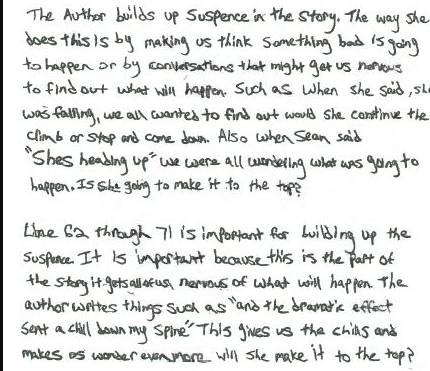 The Author builds up Suspence in the Story. The way she
does this is by making us think Something bad is going
to happen or by conversations that might get us nervous
to find out what will happen. Such as when she said, she
was falling, we all wanted to find out would she continue the
climb or stop and come down. Also when Sean said
"Shes heading up" we were all wondering what was going to
happen. Is she going to make it to the top?
Line 62 through 71 is important for building up the
Suspence. It is important because this is the part of
the story it gets all of us nervous of what will happen. The
author writes things such as "and the dramatic effect
sent a chill down my spine" This gives us the chills and
makes us wonder even more will she make it to the top?